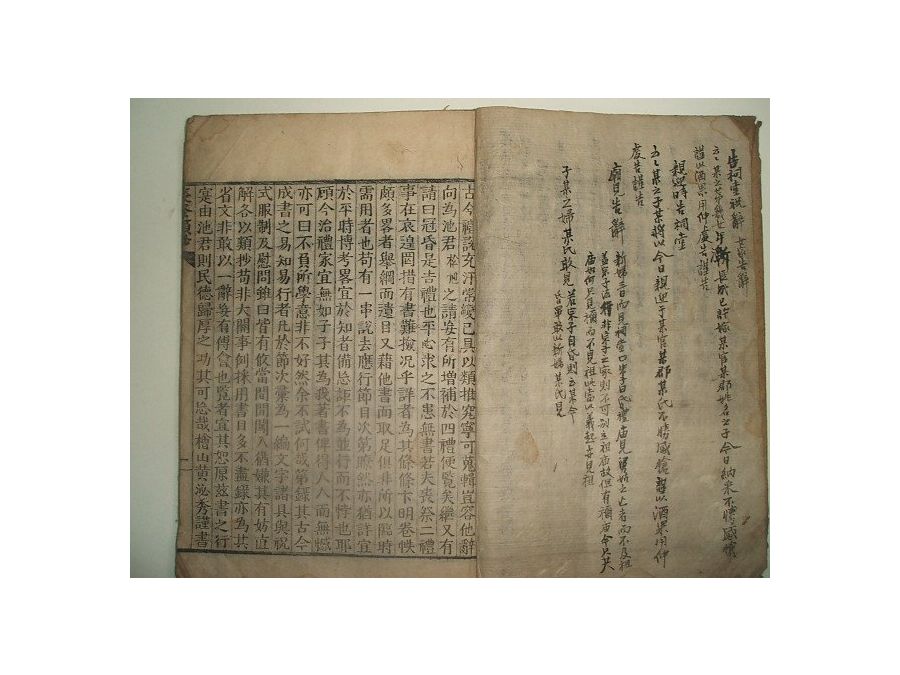 告祠堂祝辭 女家告辭
某之第幾女年漸長成已許嫁某官某郡姓名之子今日納采不勝感愴
謹以酒果用伸虔告謹告
親迎時告祠堂
某之子某將以今日親迎于某官某郡某氏不勝感愴謹以酒果用伸
虔告謹告
廟見告辭
新婦三日而見祠堂
子某之婦某氏敢見 若宗子自昏則云某今
昏畢敢以新婦某氏見
古今禮說充汗常變已具以類推究寧可蒐輯豈容他辭
向為池君松洲之請妄有所增補於四禮便覽矣繼又有
請曰冠昏是吉禮也平心求之不患無書若夫喪祭二禮
事在哀遑罔措有書難撿況乎詳者為其條條卞明卷帙
頗多畧者舉綱而遺目又藉他書而取足俱非所以臨時
需用者也苟有一串說去應行節目次第瞭然亦猶詳宜
於平時博考畧宜於知者備忘詎不為並行而不悖也耶
顧今治禮家宜無如子子其為我著書俾得人人而無憾
亦可曰不負所學意非不好然余不試何哉第錄其古今
成書之易知易行者凡於節次彙為一編文字諸具與祝
式服制及慰問雖曰皆有攸當間間闖入猶嫌其有妨直
解各以類抄苟非大關事例採用書目多不盡錄亦為其
省文非敢以一辭妄有傅會也覽者宜其恕原玆書之行
寔由池君則民德歸厚之功其可忘哉檜山黃泌秀謹書